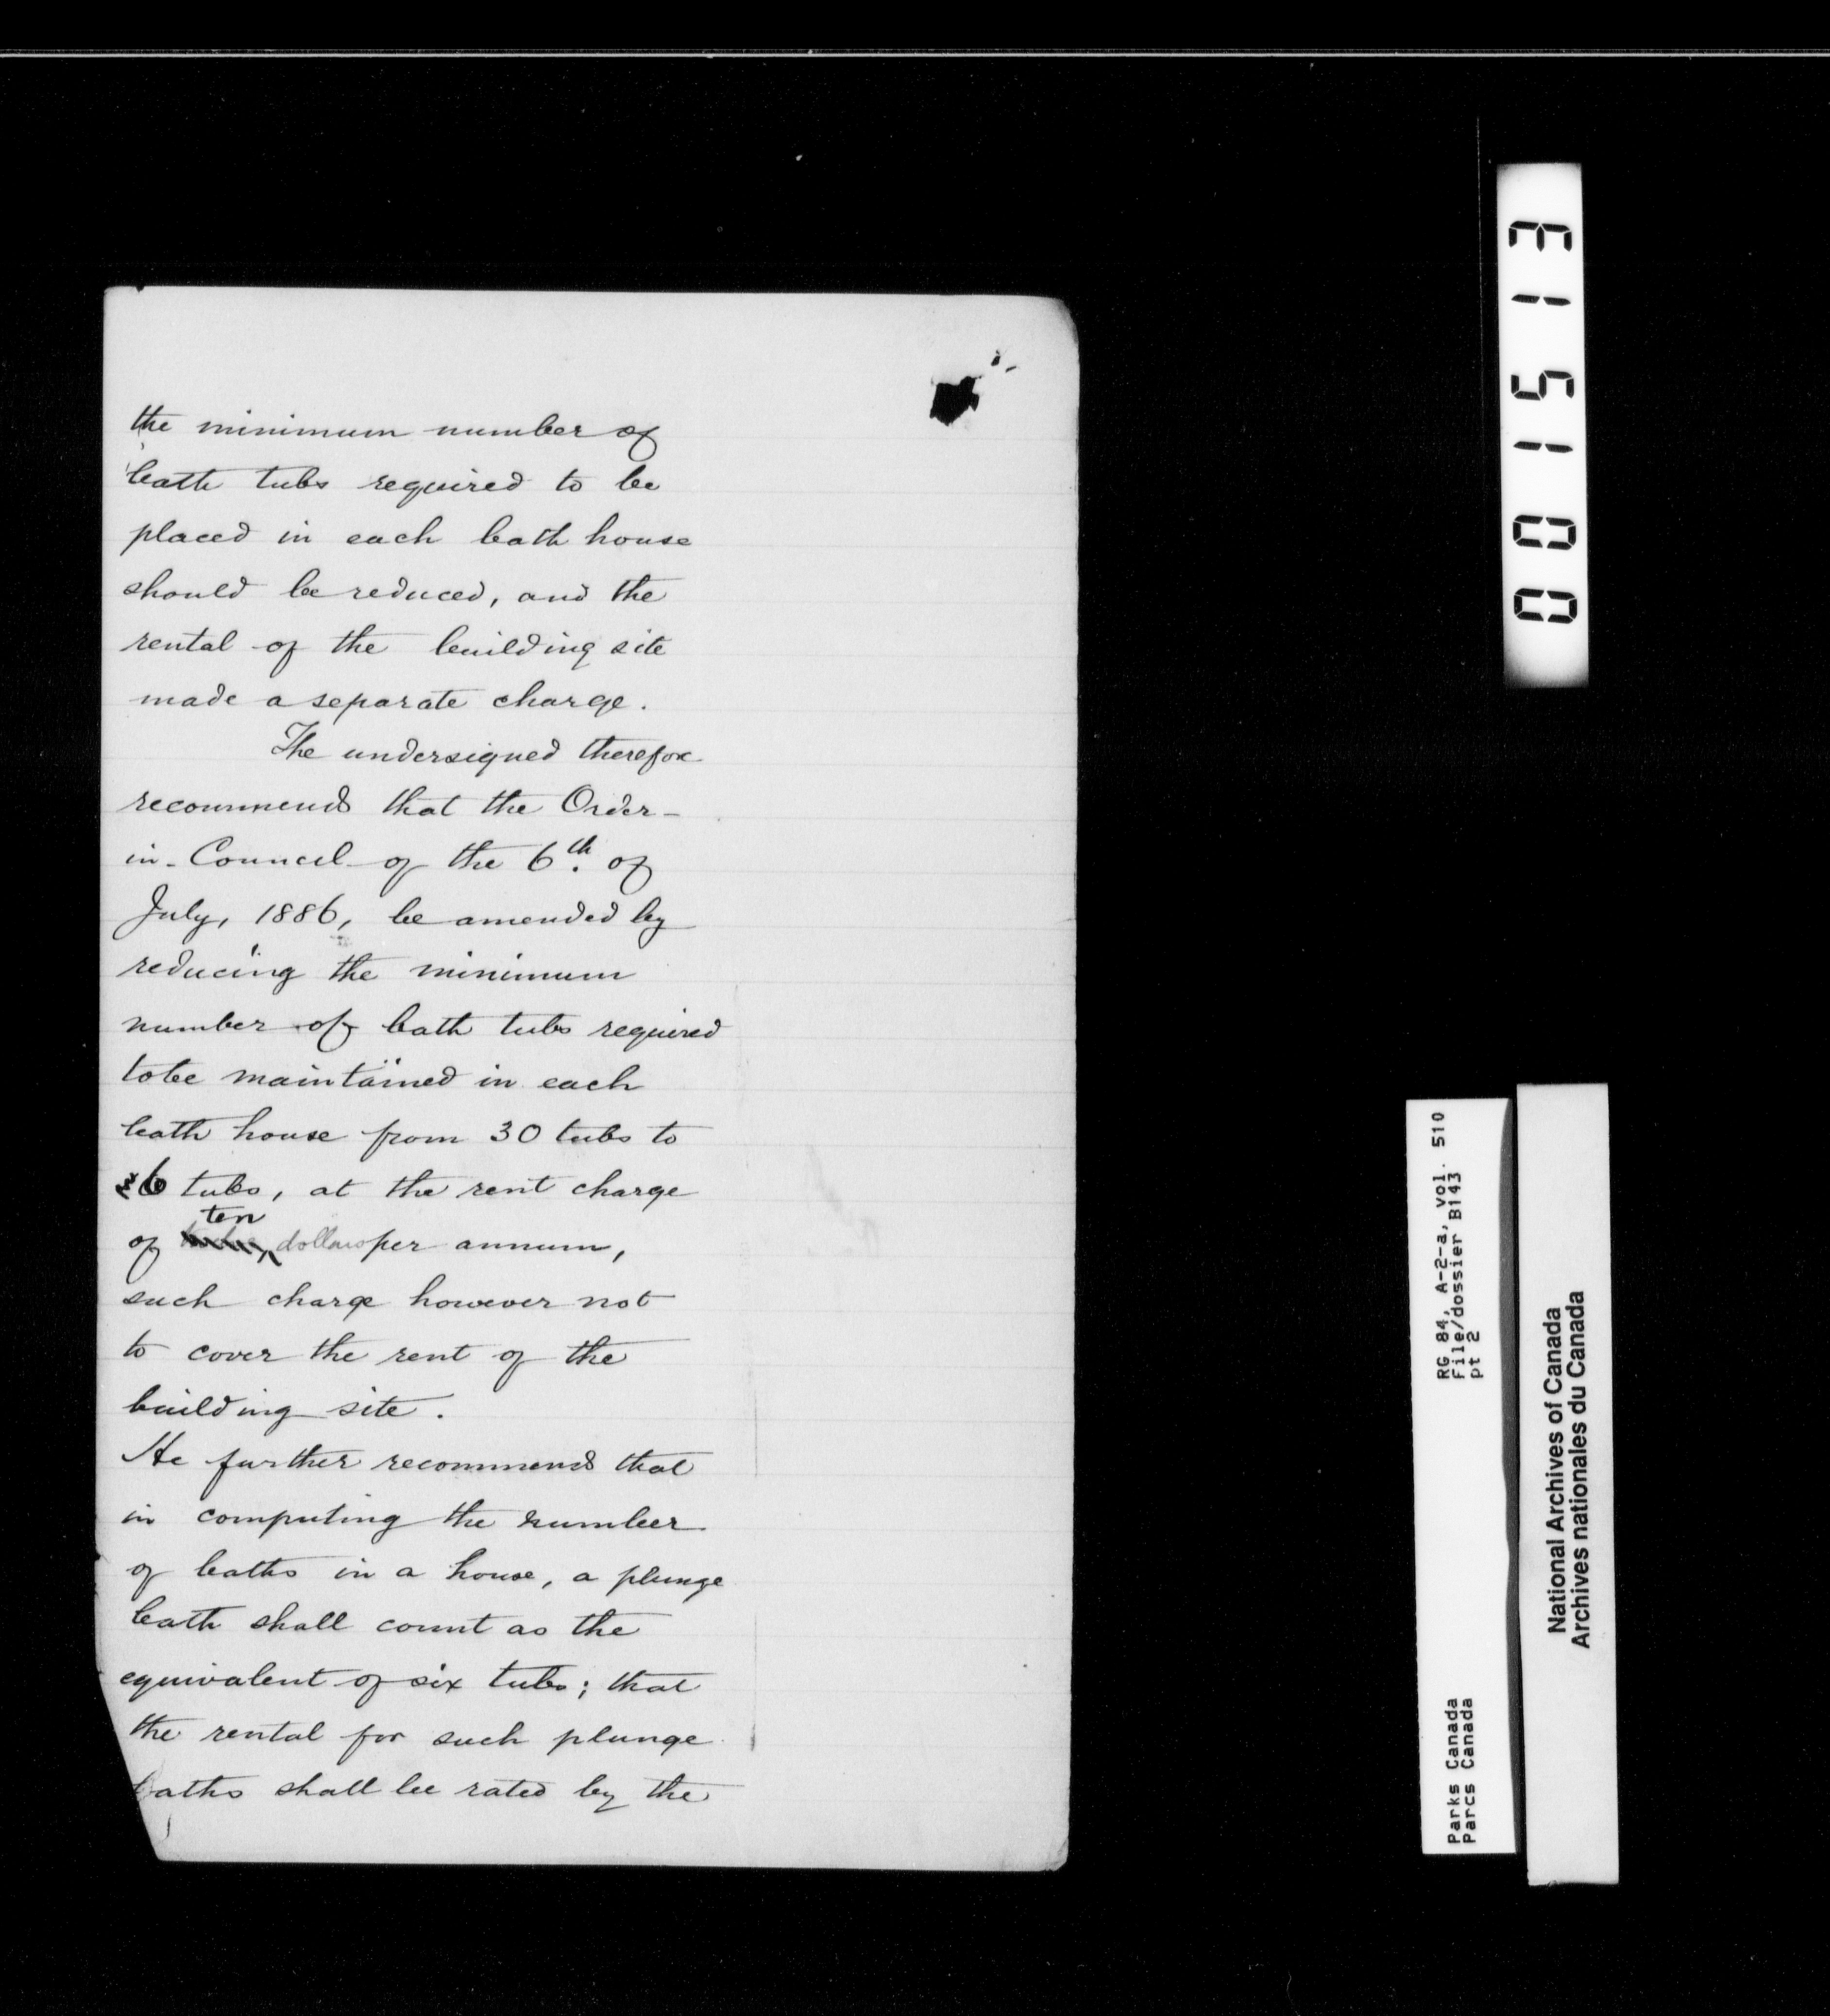 the minimum number of
bath tubs required to be
placed in each bath house
should be reduced, and the
rental of the building site
made a separate charge.
The undersigned therefore
recommends that the Order-
in-Council of the 6th. of
July, 1886, be amended by
reducing the minimum
number of bath tubs required
to be maintained in each
bath house from 30 tubs to
6 tubs, at the rent charge
ten
of dollars per annum,
such charge however not
to cover the rent of the
building site.
He further recommends that
in computing the number
of baths in a house, a plunge
bath shall count as the
equivalent of six tubs; that
the rental for such plunge
baths shall be rated by the
001513
RG 84, A-2-a, vol. 510
File/dossier B143
pt 2
Parks Canada
Parcs Canada
National Archives of Canada
Archives nationales du Canada